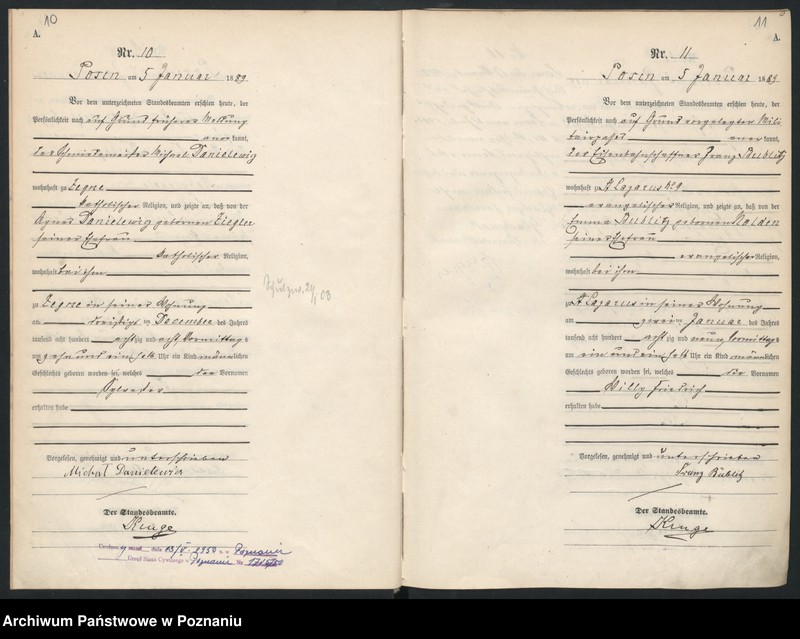 10
A.
Nr. 10
Posen am 5 Januar 1889.
Vor dem unterzeichneten Standesbeamten erschien heute, der
Persönlichkeit nach auf Grund früherer Meldung
anerkannt,
der Schmiedemeister Michael Danielewicz
wohnhaft zu Zegrze
katholischer Religion, und zeigte an, daß von der
Agnes Danielewicz geborenen Ziegler
seiner Ehefrau
katholischer Religion,
wohnhaft bei ihm
zu Zegrze in seiner Wohnung
am dreißigsten December des Jahres
tausend acht hundert achtzig und acht Vormittags
um zehn und ein halb Uhr ein Kind männlichen
Geschlechts geboren worden sei, welches den Vornamen
Sylvester
erhalten habe
Vorgelesen, genehmigt und unterschrieben
Michał Danielewicz
Der Standesbeamte.
Kruge
dnia 13/V 1950 Poznaniu
Urząd Stanu Cywilnego w Poznaniu Nr
11
A.
Nr. 11
Posen am 5 Januar 1889.
Vor dem unterzeichneten Standesbeamten erschien heute, der
Persönlichkeit nach auf Grund vorgelegter Mili
tairpapes anerkannt,
der Eisenbahnschaffner Franz Bublitz
wohnhaft zu St Lazarus 429
evangelischer Religion, und zeigte an, daß von der
Emma Bublitz geborenen
seiner Ehefrau
evangelischer Religion,
wohnhaft bei ihm
zu St Lazarus in seiner Wohnung
am zweiten Januar des Jahres
tausend acht hundert achtzig und neun Vormittags
um ein und ein halb Uhr ein Kind männlichen
Geschlechts geboren worden sei, welches die Vornamen
Willy Friedrich
erhalten habe
Vorgelesen, genehmigt und unterschrieben
Franz Bublitz
Der Standesbeamte.
Kruge
Archiwum Państwowe w Poznaniu